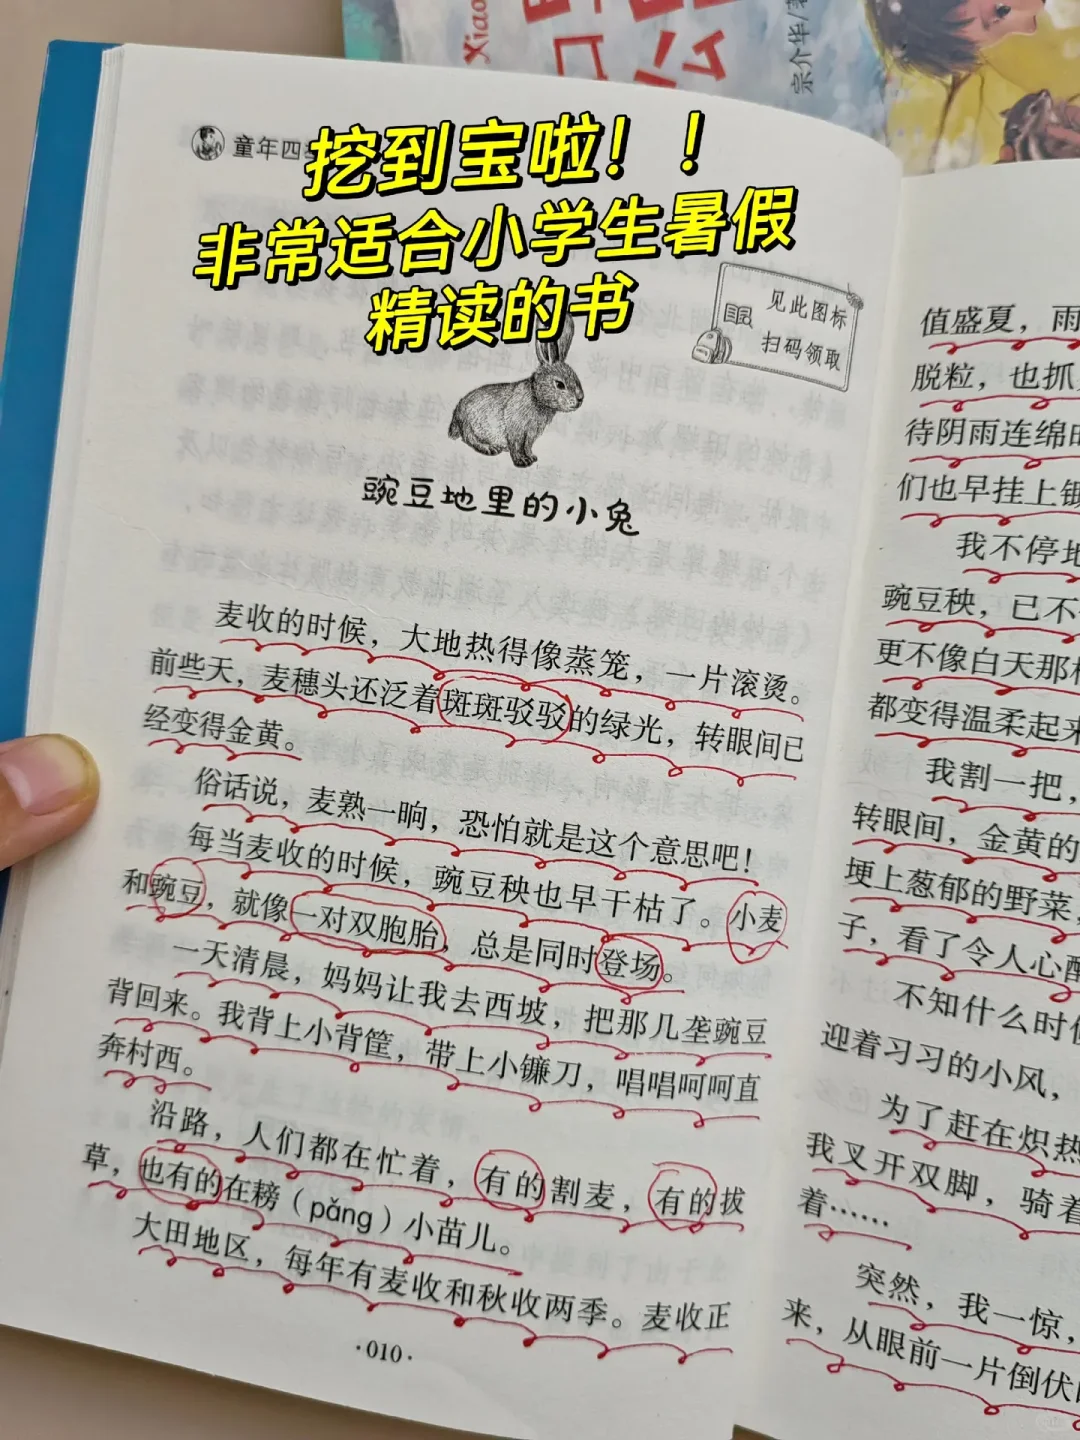 童年四
挖到宝啦！！
非常适合小学生暑假
精读的书
Xiao
宗介华/
见此图标
扫码领取
豌豆地里的小兔
麦收的时候，大地热得像蒸笼，一片滚烫。
前些天，麦穗头还泛着斑斑驳驳的绿光，转眼间已
经变得金黄。
俗话说，麦熟一晌，恐怕就是这个意思吧！
每当麦收的时候，豌豆秧也早干枯了。小麦
和豌豆，就像一对双胞胎，总是同时登场。
一天清晨，妈妈让我去西坡，把那几垄豌豆
背回来。我背上小背筐，带上小镰刀，唱唱呵呵直
奔村西。
沿路，人们都在忙着，有的割麦，有的拔
草，也有的在耪（pǎng）小苗儿。
大田地区，每年有麦收和秋收两季。麦收正
·010·
值盛夏，雨
脱粒，也抓
待阴雨连绵
们也早挂上
我不停地
豌豆秧，已不
更不像白天那
都变得温柔起来
我割一把，
转眼间，金黄的
埂上葱郁的野菜，
子，看了令人心
不知什么时
迎着习习的小风，
为了赶在炽热
我叉开双脚，骑着
着……
突然，我一惊，
来，从眼前一片倒伏